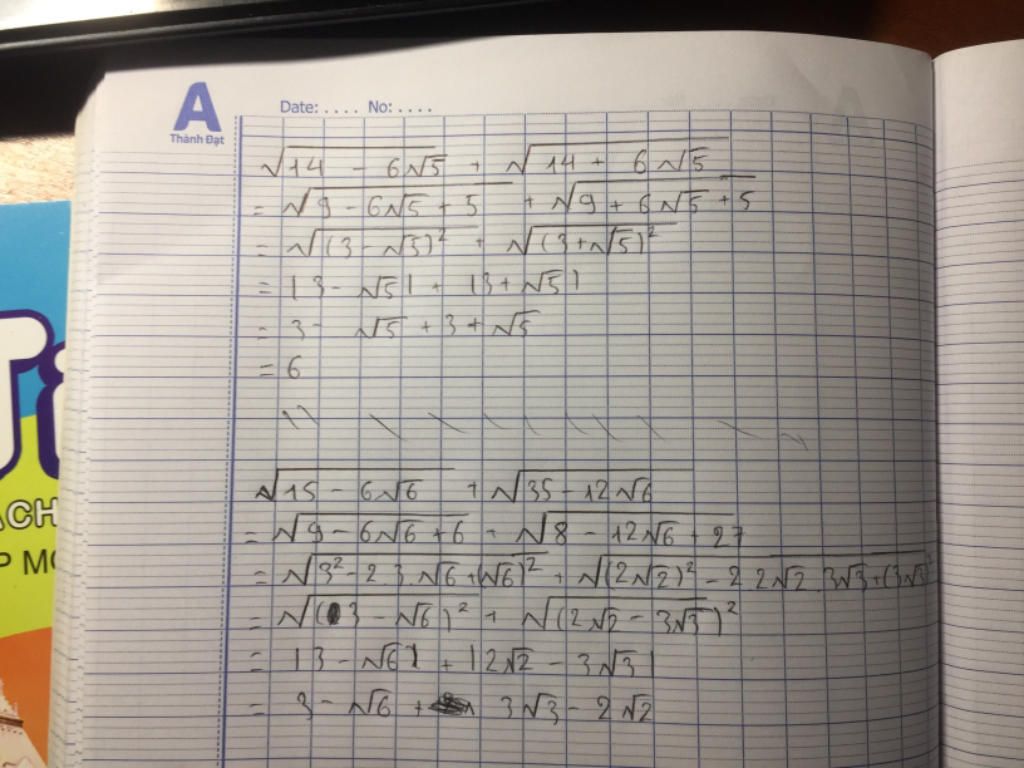 A
Thành Đạt
Date: .... No: ....
√14 - 6√5 + √14 + 6√5
= √9 - 6√5 + 5 + √9 + 6√5 + 5
= √(3 - √5)² + √(3+√5)²
= |3 - √5| + |3+√5|
= 3 - √5 + 3 + √5
= 6
√15 - 6√6 + √35 - 12√6
= √9 - 6√6 + 6 + √8 - 12√6 + 27
= √3² - 2.3.√6 + (√6)² + √(2√2)² - 2.2√2.3√3 + (3√3)²
= √(3 - √6)² + √(2√2 - 3√3)²
= |3 - √6| + |2√2 - 3√3|
= 3 - √6 + 3√3 - 2√2
ACH
P MO